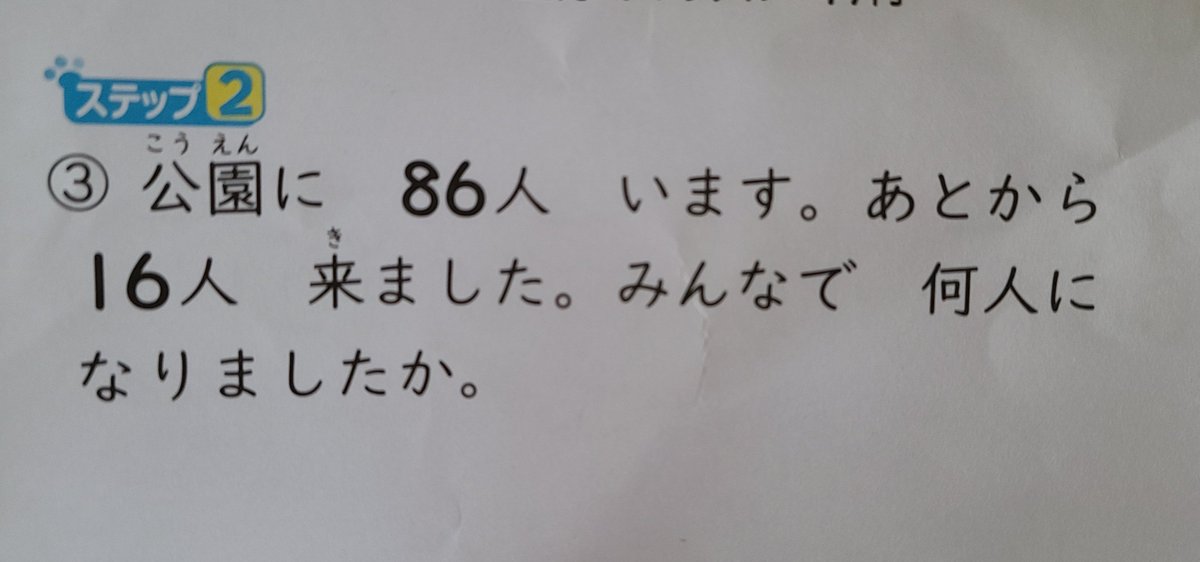 ステップ2
こうえん
③ 公園に 86人 います。あとから
き
16人 来ました。みんなで 何人に
なりましたか。